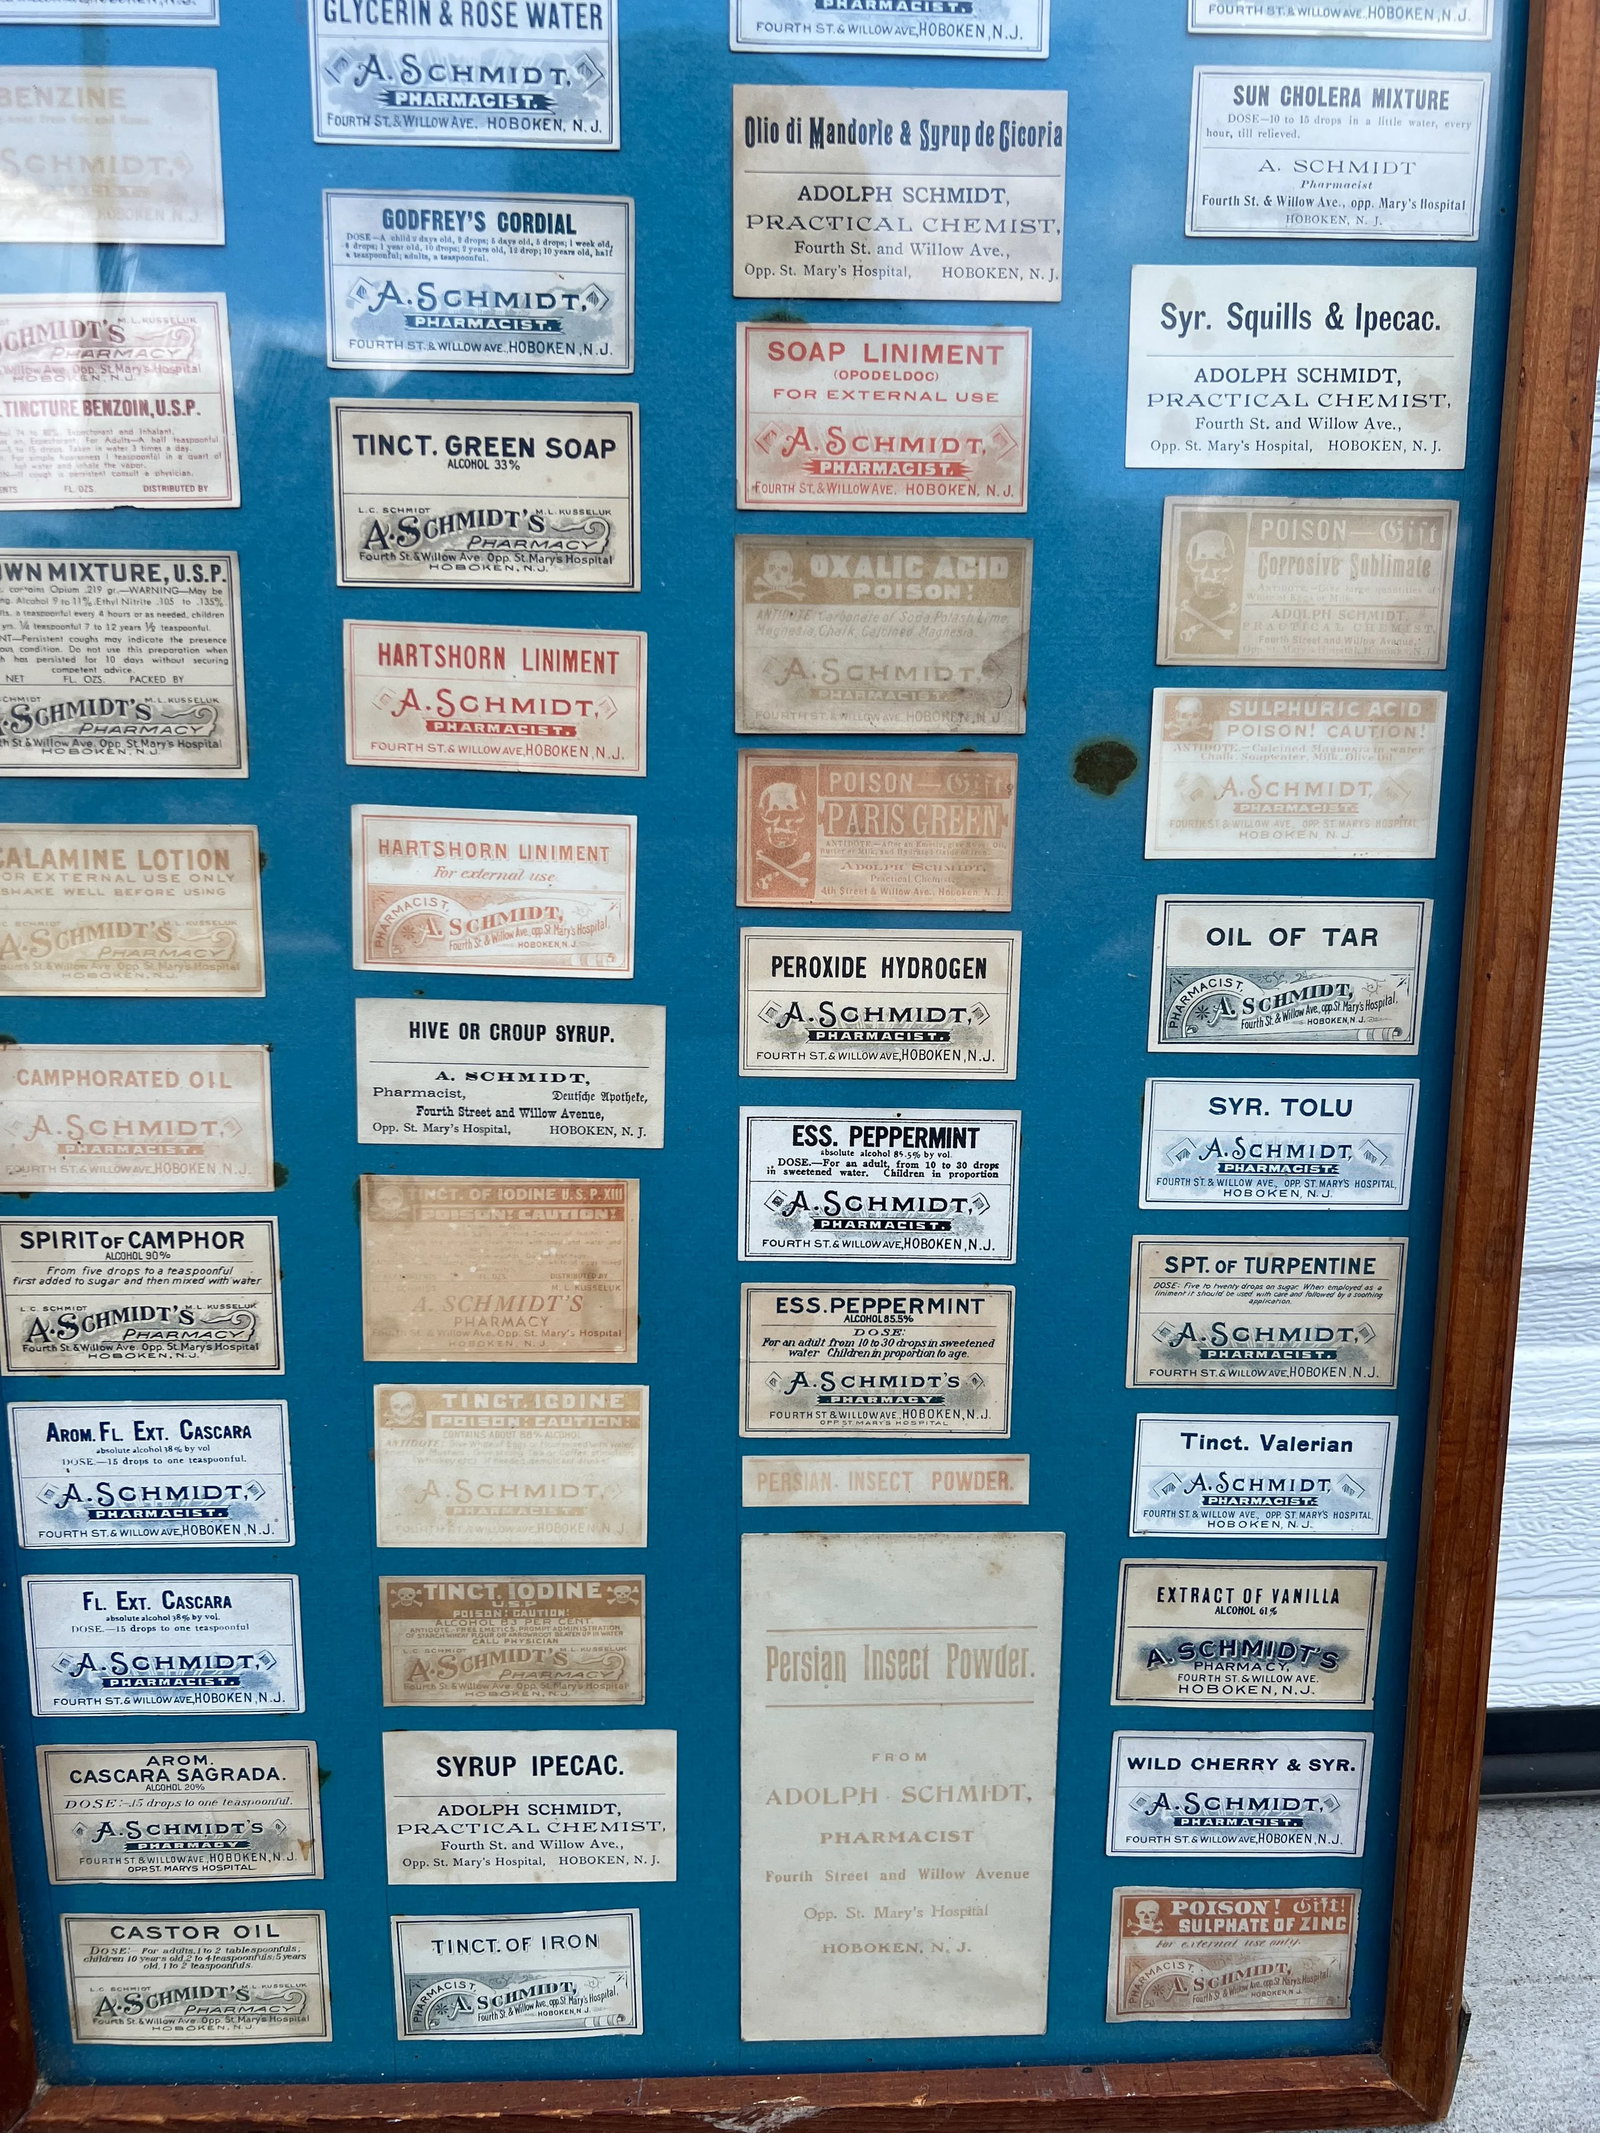 BENZINE
SCHMIDT,
HOBOKEN N.J.
SCHMIDT'S
M.L. KUSSELUK
PHARMACY
Willow Ave. Opp. St. Mary's Hospital
HOBOKEN, N.J.
TINCTURE BENZOIN, U.S.P.
FL. OZS. DISTRIBUTED BY
WN MIXTURE, U.S.P.
contains Opium .219 gr.—WARNING—May be
Alcohol 9 to 11% Ethyl Nitrite .105 to .135%
a teaspoonful every 4 hours or as needed, children
yrs. ¼ teaspoonful 7 to 12 years ½ teaspoonful.
NT—Persistent coughs may indicate the presence
condition. Do not use this preparation when
has persisted for 10 days without securing
competent advice.
NET FL. OZS. PACKED BY
SCHMIDT M.L. KUSSELUK
SCHMIDT'S
PHARMACY
St & Willow Ave. Opp. St. Mary's Hospital
HOBOKEN, N.J.
CALAMINE LOTION
OR EXTERNAL USE ONLY
SHAKE WELL BEFORE USING
SCHMIDT M.L. KUSSELUK
A. SCHMIDT'S
PHARMACY
Fourth St & Willow Ave. Opp St. Mary's Hospital
HOBOKEN, N.J.
CAMPHORATED OIL
A. SCHMIDT,
PHARMACIST.
FOURTH ST. & WILLOW AVE, HOBOKEN, N.J.
SPIRIT OF CAMPHOR
ALCOHOL 90%
From five drops to a teaspoonful
first added to sugar and then mixed with water
L.C. SCHMIDT M.L. KUSSELUK
A. SCHMIDT'S
PHARMACY
Fourth St. & Willow Ave. Opp. St. Mary's Hospital
HOBOKEN, N.J.
AROM. FL. EXT. CASCARA
absolute alcohol 38% by vol
DOSE.—15 drops to one teaspoonful.
A. SCHMIDT,
PHARMACIST.
FOURTH ST. & WILLOW AVE, HOBOKEN, N.J.
FL. EXT. CASCARA
absolute alcohol 38% by vol.
DOSE.—15 drops to one teaspoonful
A. SCHMIDT,
PHARMACIST.
FOURTH ST. & WILLOW AVE, HOBOKEN, N.J.
AROM.
CASCARA SAGRADA.
ALCOHOL 20%
DOSE:—15 drops to one teaspoonful.
A. SCHMIDT'S
PHARMACY
FOURTH ST. & WILLOW AVE, HOBOKEN, N.J.
OPP ST. MARYS HOSPITAL
CASTOR OIL
DOSE:— For adults, 1 to 2 tablespoonfuls;
children 10 years old, 2 to 4 teaspoonfuls; 5 years
old, 1 to 2 teaspoonfuls.
L.C. SCHMIDT M.L. KUSSELUK
A. SCHMIDT'S
PHARMACY
Fourth St. & Willow Ave. Opp. St. Mary's Hospital
HOBOKEN, N.J.
GLYCERIN & ROSE WATER
A. SCHMIDT,
PHARMACIST.
FOURTH ST. & WILLOW AVE. HOBOKEN, N.J.
GODFREY'S CORDIAL
DOSE—A child 2 days old, 2 drops; 5 days old, 3 drops; 1 week old,
4 drops; 1 year old, 10 drops; 2 years old, 12 drop; 10 years old, half
a teaspoonful; adults, a teaspoonful.
A. SCHMIDT,
PHARMACIST.
FOURTH ST. & WILLOW AVE., HOBOKEN, N.J.
TINCT. GREEN SOAP
ALCOHOL 33%
L.C. SCHMIDT M.L. KUSSELUK
A. SCHMIDT'S
PHARMACY
Fourth St. & Willow Ave. Opp. St. Mary's Hospital
HOBOKEN, N.J.
HARTSHORN LINIMENT
A. SCHMIDT,
PHARMACIST.
FOURTH ST. & WILLOW AVE, HOBOKEN, N.J.
HARTSHORN LINIMENT
For external use
PHARMACIST,
A. SCHMIDT,
Fourth St. & Willow Ave, opp. St. Mary's Hospital,
HOBOKEN, N.J.
HIVE OR CROUP SYRUP.
A. SCHMIDT,
Pharmacist, Deutsche Apotheke,
Fourth Street and Willow Avenue,
Opp. St. Mary's Hospital, HOBOKEN, N. J.
TINCT. OF IODINE U.S.P. XIII
POISON! CAUTION!
DISTRIBUTED BY
M.L. KUSSELUK
A. SCHMIDT'S
PHARMACY
Fourth St. & Willow Ave. Opp. St. Mary's Hospital
HOBOKEN, N.J.
TINCT. IODINE
POISON! CAUTION!
CONTAINS ABOUT 88% ALCOHOL
A. SCHMIDT,
PHARMACIST.
FOURTH ST. & WILLOW AVE, HOBOKEN, N.J.
TINCT. IODINE
U.S.P
POISON! CAUTION!
ALCOHOL 83 PER CENT.
ANTIDOTE-FREE EMETICS, PROMPT ADMINISTRATION
OF STARCH WHEAT FLOUR OR ARROWROOT BEATEN UP IN WATER
CALL PHYSICIAN
L.C. SCHMIDT M.L. KUSSELUK
A. SCHMIDT'S
PHARMACY
Fourth St. & Willow Ave. Opp. St. Mary's Hospital
HOBOKEN, N.J.
SYRUP IPECAC.
ADOLPH SCHMIDT,
PRACTICAL CHEMIST,
Fourth St. and Willow Ave.,
Opp. St. Mary's Hospital, HOBOKEN, N. J.
TINCT. OF IRON
PHARMACIST,
A. SCHMIDT,
Fourth St. & Willow Ave, opp St. Mary's Hospital,
HOBOKEN, N.J.
PHARMACIST.
FOURTH ST. & WILLOW AVE, HOBOKEN, N.J.
Olio di Mandorle & Syrup de Cicoria
ADOLPH SCHMIDT,
PRACTICAL CHEMIST,
Fourth St. and Willow Ave.,
Opp. St. Mary's Hospital, HOBOKEN, N. J.
SOAP LINIMENT
(OPODELDOC)
FOR EXTERNAL USE
A. SCHMIDT,
PHARMACIST.
FOURTH ST. & WILLOW AVE. HOBOKEN, N.J.
OXALIC ACID
POISON!
ANTIDOTE—Carbonate of Soda Potash, Lime,
Magnesia, Chalk, Calcined Magnesia.
A. SCHMIDT,
PHARMACIST.
FOURTH ST. & WILLOW AVE. HOBOKEN, N.J.
POISON—Gift
PARIS GREEN
ADOLPH SCHMIDT,
Practical Chemist,
4th Street & Willow Ave., Hoboken, N. J.
PEROXIDE HYDROGEN
A. SCHMIDT,
PHARMACIST.
FOURTH ST. & WILLOW AVE, HOBOKEN, N.J.
ESS. PEPPERMINT
absolute alcohol 85.5% by vol.
DOSE.—For an adult, from 10 to 30 drops
in sweetened water. Children in proportion
A. SCHMIDT,
PHARMACIST.
FOURTH ST. & WILLOW AVE, HOBOKEN, N.J.
ESS. PEPPERMINT
ALCOHOL 85.5%
DOSE:
For an adult from 10 to 30 drops in sweetened
water Children in proportion to age.
A. SCHMIDT'S
PHARMACY
FOURTH ST & WILLOW AVE, HOBOKEN, N.J.
OPP ST. MARY'S HOSPITAL
PERSIAN INSECT POWDER.
Persian Insect Powder.
FROM
ADOLPH SCHMIDT,
PHARMACIST
Fourth Street and Willow Avenue
Opp. St. Mary's Hospital
HOBOKEN, N. J.
FOURTH ST. & WILLOW AVE. HOBOKEN, N.J.
SUN CHOLERA MIXTURE
DOSE—10 to 15 drops in a little water, every
hour, till relieved.
A. SCHMIDT
Pharmacist
Fourth St. & Willow Ave., opp. Mary's Hospital
HOBOKEN, N. J.
Syr. Squills & Ipecac.
ADOLPH SCHMIDT,
PRACTICAL CHEMIST,
Fourth St. and Willow Ave.,
Opp. St. Mary's Hospital, HOBOKEN, N. J.
POISON—Gift
Corrosive Sublimate
ADOLPH SCHMIDT,
PRACTICAL CHEMIST,
Fourth Street and Willow Avenue,
Opp. St. Mary's Hospital, Hoboken, N. J.
SULPHURIC ACID
POISON! CAUTION!
ANTIDOTE.—Calcined Magnesia in water
Chalk, Soapwater, Milk, Olive Oil.
A. SCHMIDT,
PHARMACIST.
FOURTH ST & WILLOW AVE, OPP. ST. MARY'S HOSPITAL,
HOBOKEN N.J.
OIL OF TAR
PHARMACIST,
A. SCHMIDT,
Fourth St. & Willow Ave, opp. St. Mary's Hospital,
HOBOKEN, N.J.
SYR. TOLU
A. SCHMIDT,
PHARMACIST.
FOURTH ST. & WILLOW AVE, OPP. ST. MARY'S HOSPITAL,
HOBOKEN, N.J.
SPT. OF TURPENTINE
DOSE: Five to twenty drops on sugar. When employed as a
liniment it should be used with care and followed by a soothing
application.
A. SCHMIDT,
PHARMACIST.
FOURTH ST. & WILLOW AVE, HOBOKEN, N.J.
Tinct. Valerian
A. SCHMIDT,
PHARMACIST.
FOURTH ST. & WILLOW AVE, OPP. ST. MARY'S HOSPITAL,
HOBOKEN, N.J.
EXTRACT OF VANILLA
ALCOHOL 61%
A. SCHMIDT'S
PHARMACY,
FOURTH ST. & WILLOW AVE.
HOBOKEN, N.J.
WILD CHERRY & SYR.
A. SCHMIDT,
PHARMACIST.
FOURTH ST. & WILLOW AVE, HOBOKEN, N.J.
POISON! Gift!
SULPHATE OF ZINC
For external use only.
PHARMACIST,
A. SCHMIDT,
Fourth St. & Willow Ave, opp St. Mary's Hospital,
HOBOKEN, N.J.